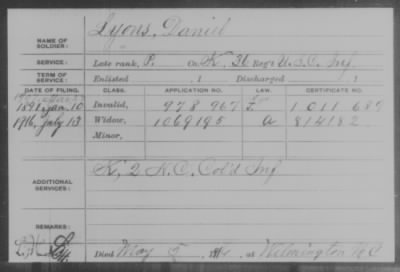 NAME OF SOLDIER: Lyons, Daniel
SERVICE: Late rank, P. Co K, 36 Reg't U.S.C. Inf.
TERM OF SERVICE: Enlisted , 1 Discharged , 1
DATE OF FILING. CLASS. APPLICATION NO. LAW. CERTIFICATE NO.
1891, Jan. 10 Invalid, 978 967 1011 687
1916, July 13 Widow, 1069195 a 814182
Minor,
ADDITIONAL SERVICES: K, 2 N.C. Col'd Inf
REMARKS:
Died May at Wilmington N C